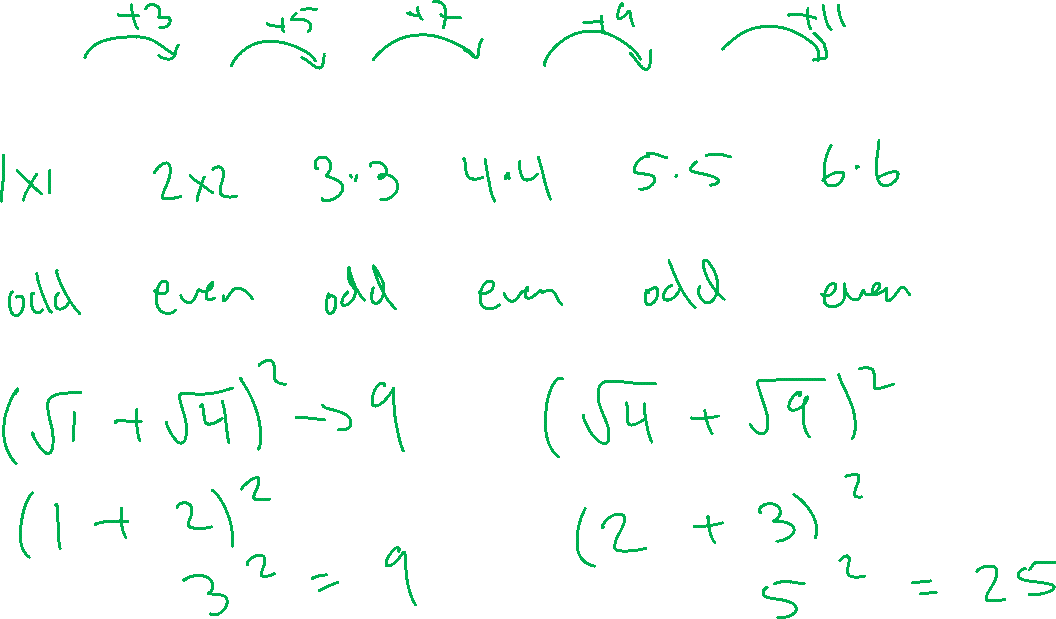 +3 +5 +7 +9 +11
1×1 2×2 3·3 4·4 5·5 6·6
odd even odd even odd even
(√1 + √4)² → 9 (√4 + √9)²
(1 + 2)² (2 + 3)²
3² = 9 5² = 25